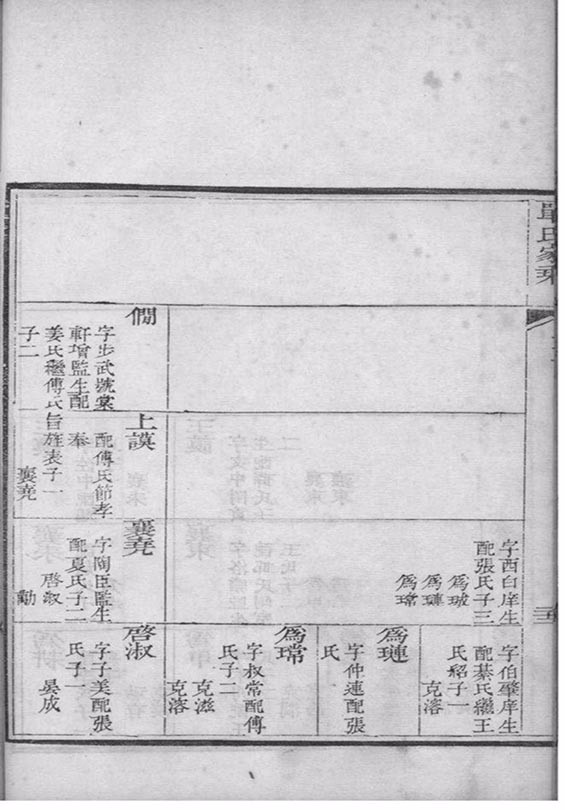 單氏家乘
字西白庠生
配張氏子三
爲珹
爲璉
爲瑺
字伯肇庠生
配綦氏繼王
氏紹子一
克溶
爲璉
字仲連配張
氏
爲瑺
字叔常配傅
氏子二
克滋
克溶
僩
字步武號棠
軒增監生配
姜氏繼傅氏
子二
上謨
配傅氏節孝
奉
旨旌表子一
襄堯
襄堯
字陶臣監生
配夏氏子二
啓淑
勷
啓淑
字子美配張
氏子一
晏成